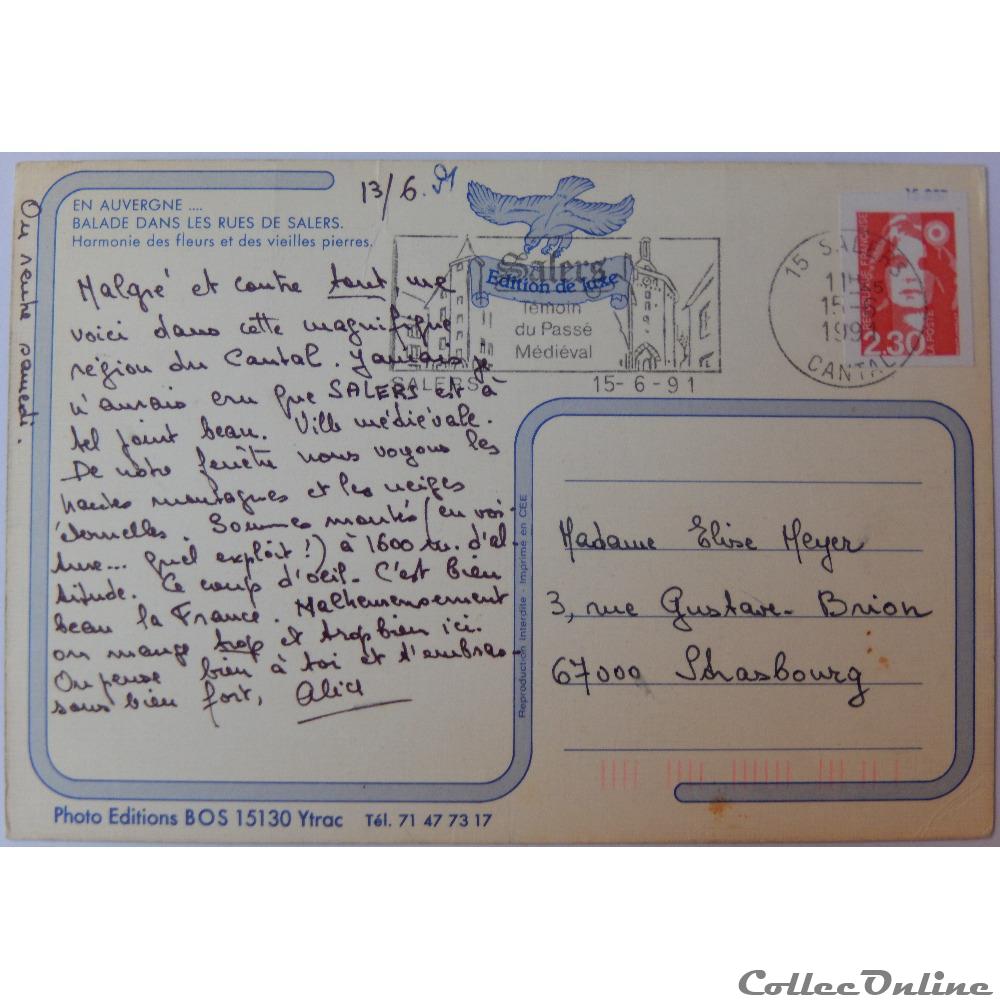 EN AUVERGNE ....
BALADE DANS LES RUES DE SALERS.
Harmonie des fleurs et des vieilles pierres.
13/6.91
On rentre samedi.
Malgré et contre tout me
voici dans cette magnifique
région du Cantal. Jamais je
n'aurais cru que SALERS est à
tel point beau. Ville médiévale.
De notre fenêtre nous voyons les
hautes montagnes et les neiges
éternelles. Sommes montés (en voi-
ture... quel exploit!) à 1600 m. d'al-
titude. Ce coup d'oeil. C'est bien
beau la France. Malheureusement
on mange trop et trop bien ici.
On pense bien à toi et t'embras-
sons bien fort, Alice
Salers
Edition de luxe
Témoin
du Passé
Médiéval
SALERS 15-6-91
15 SALERS
11H
15
199
CANTAL
REPUBLIQUE FRANCAISE
2,30
LA POSTE
Reproduction Interdite - Imprimé en CEE
Madame Elise Meyer
3, rue Gustave-Brion
67000 Strasbourg
Photo Editions BOS 15130 Ytrac Tél. 71 47 73 17
CollecOnline